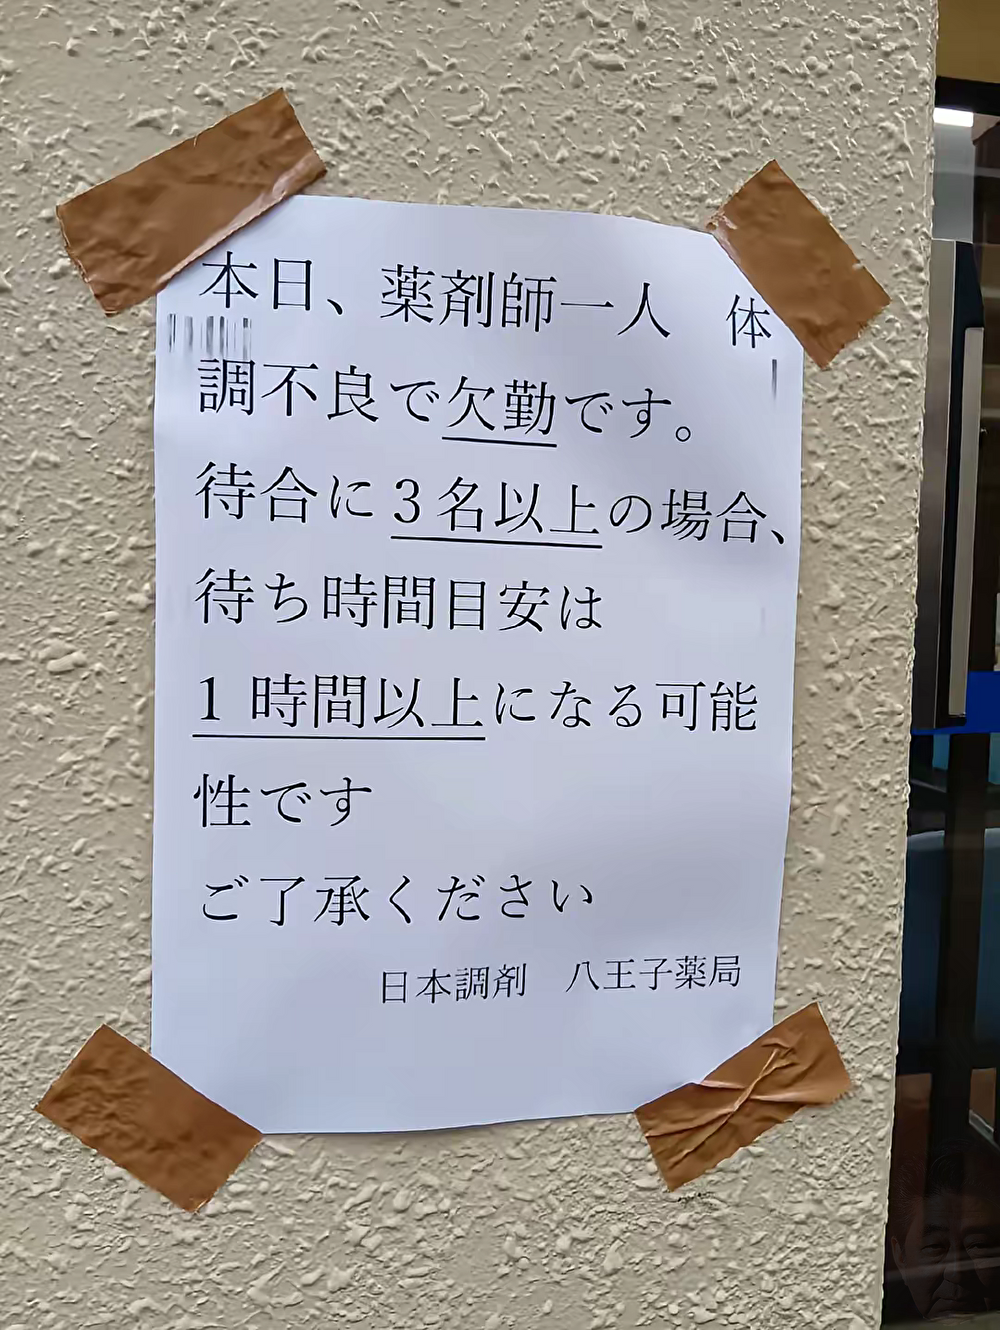 本日、薬剤師一人　体
調不良で欠勤です。
待合に3名以上の場合、
待ち時間目安は
1 時間以上になる可能
性です
ご了承ください
日本調剤　八王子薬局